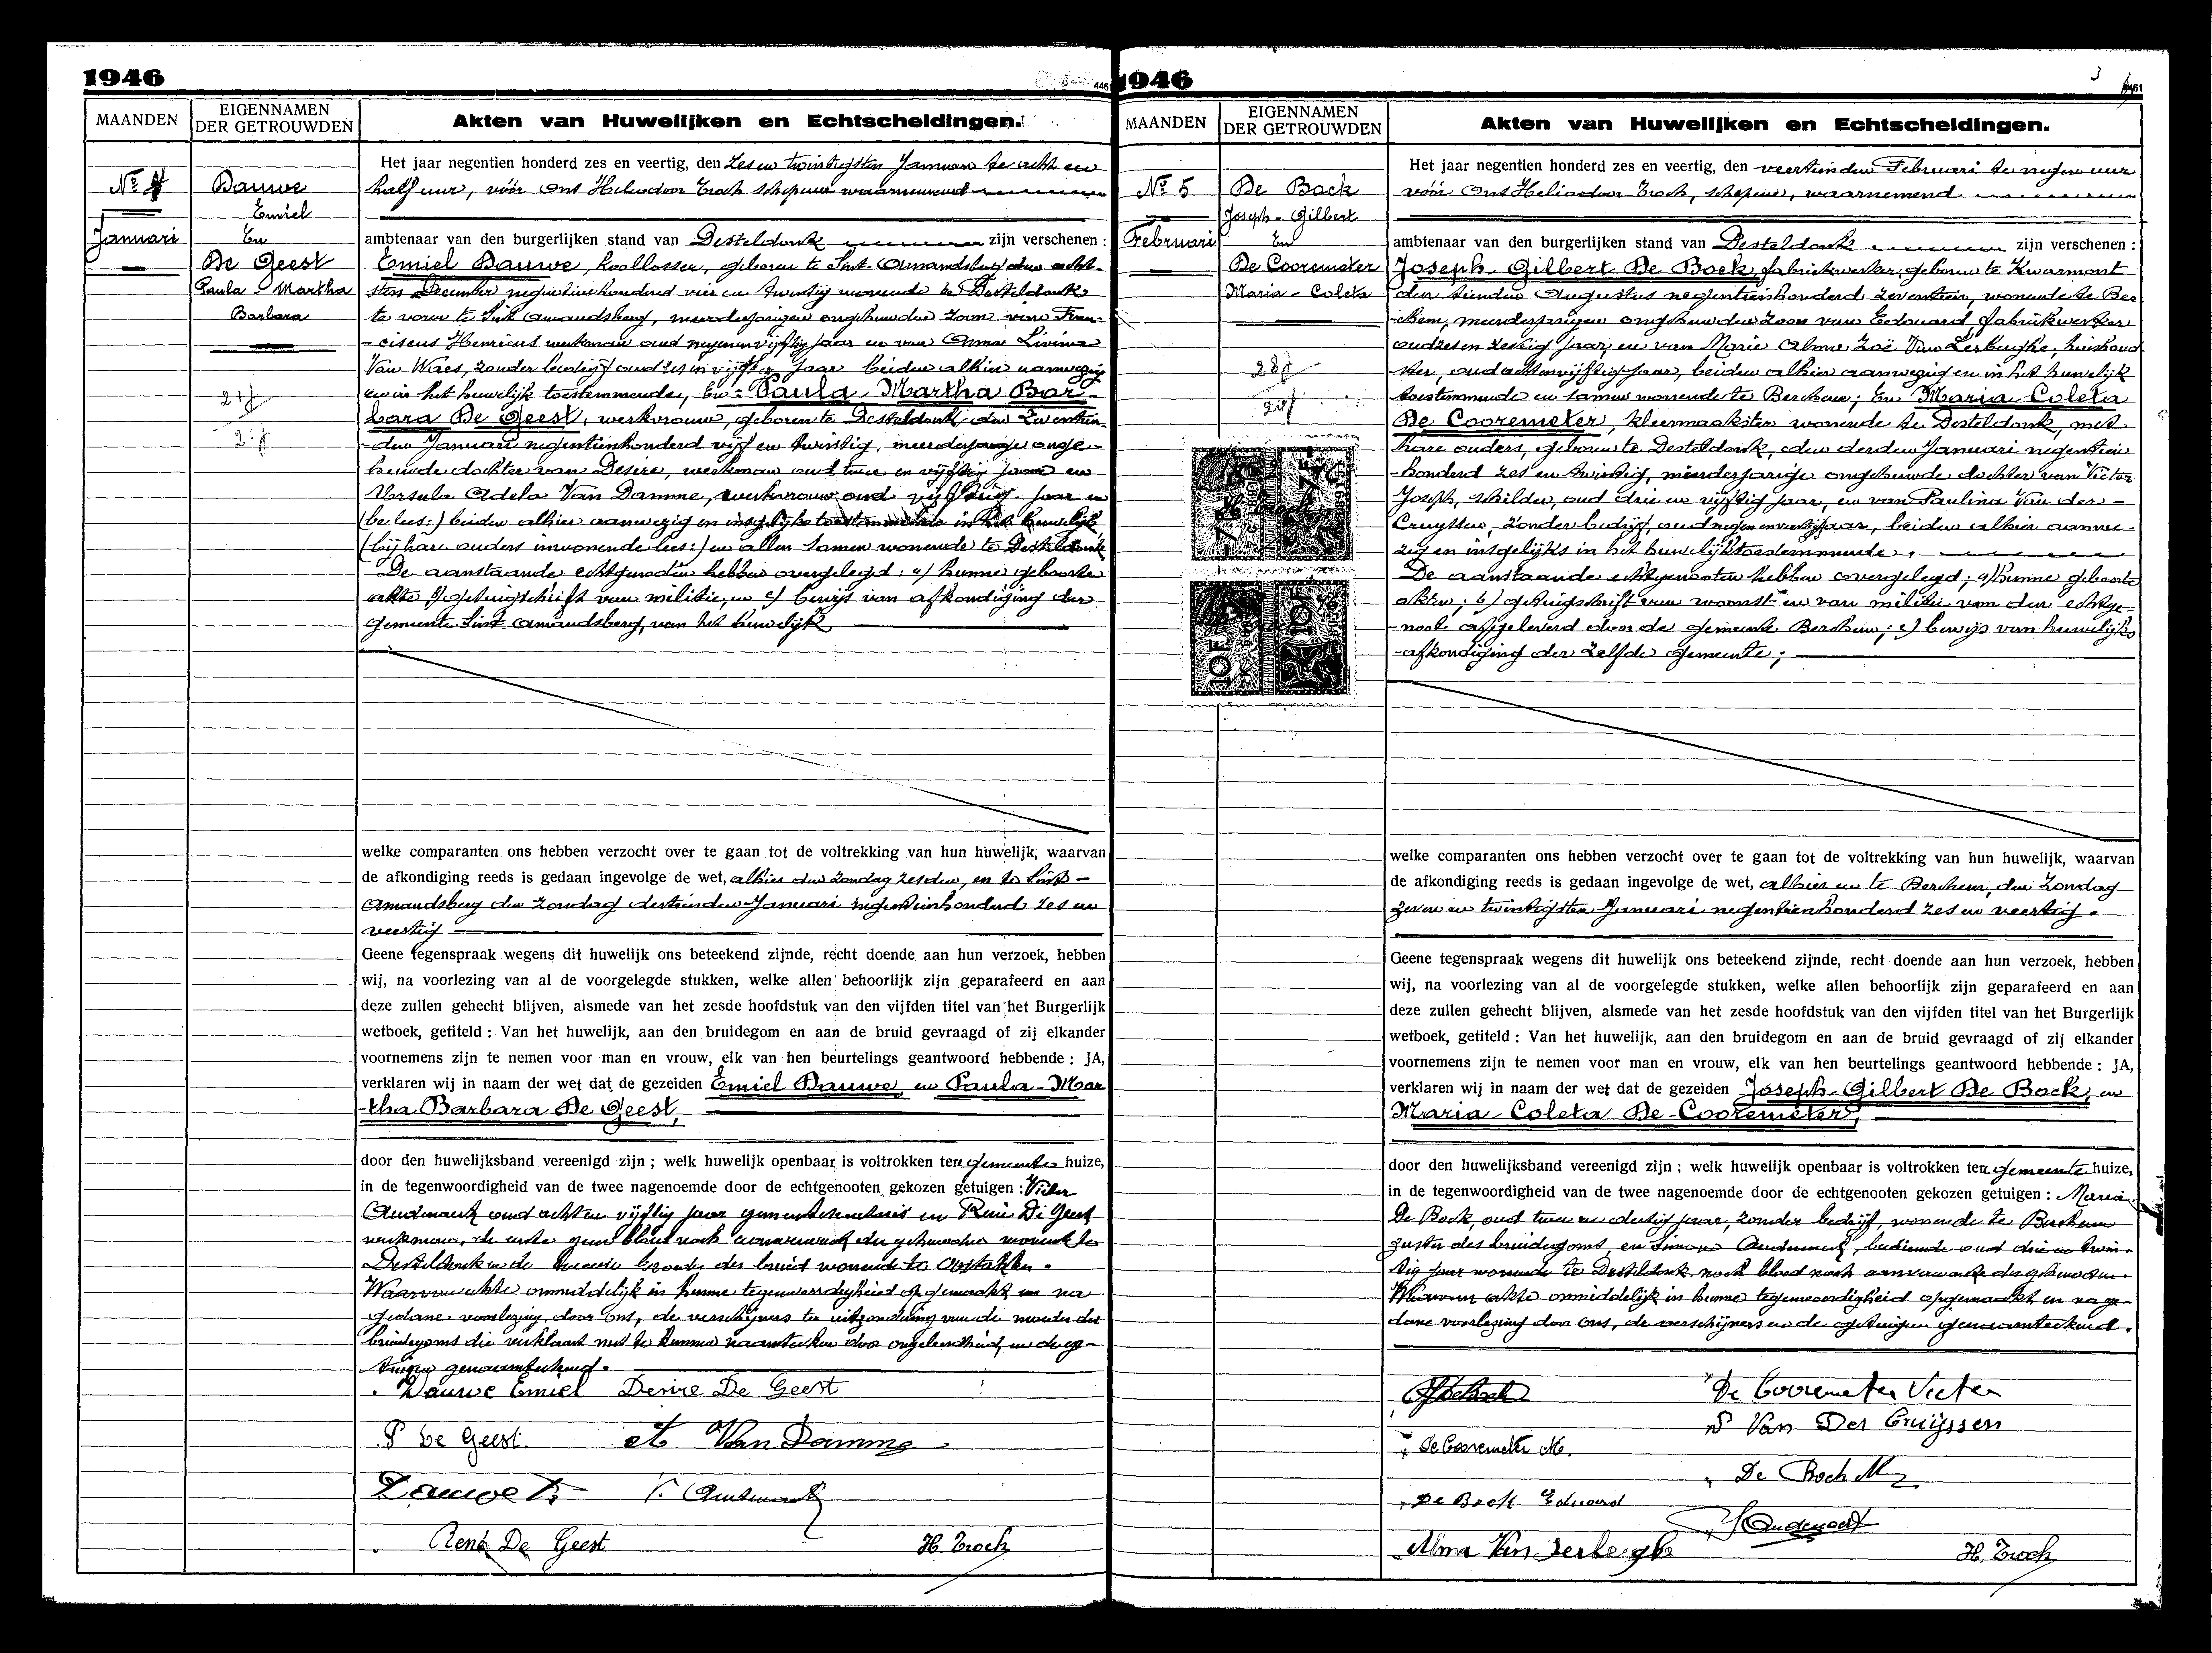 1946
MAANDEN
EIGENNAMEN
DER GETROUWDEN
Akten van Huwelijken en Echtscheidingen.
Nº 4
Januari
Dauwe
Emiel
En
De Geest
Paula - Martha
Barbara
21 j
21 j
Het jaar negentien honderd zes en veertig, den zes en twintigsten Januari te acht en
half uur, vóór Ons Heliodoor Troch schepene waarnemend
ambtenaar van den burgerlijken stand van Desteldonk zijn verschenen :
Emiel Dauwe, koollosser, geboren te Sint-Amandsberg den acht-
sten December negentienhonderd vier en twintig wonende te Desteldonk
te voren te Sint Amandsberg, meerderjarigen ongehuwden zoon van Fran-
-ciscus Henricus werkman oud negenenvijftig jaar en van Anna Livina
Van Waes, zonder bedrijf oud zes en vijftig jaar beiden alhier aanwezig
en in het huwelijk toestemmende, En : Paula - Martha Bar-
bara De Geest, werkvrouw, geboren te Desteldonk, den zeventien-
-den Januari negentienhonderd vijf en twintig, meerderjarige onge-
huwde dochter van Desire, werkman oud twee en vijftig jaar en
Ursula Adela Van Damme, werkvrouw oud vijftig jaar en
(belees:) beiden alhier aanwezig en insgelijks toestemmende in het huwelijk
(bij hare ouders inwonende lees:) en allen samen wonende te Desteldonk
De aanstaande echtgenoten hebben overgelegd : a) hunne geboorte
akte b) getuigschrift van militie, en c) bewijs van afkondiging der
gemeente Sint Amandsberg, van het huwelijk
welke comparanten ons hebben verzocht over te gaan tot de voltrekking van hun huwelijk, waarvan
de afkondiging reeds is gedaan ingevolge de wet, alhier den zondag zesden, en te Sint-
Amandsberg den zondag dertienden Januari negentienhonderd zes en
veertig
Geene tegenspraak wegens dit huwelijk ons beteekend zijnde, recht doende aan hun verzoek, hebben
wij, na voorlezing van al de voorgelegde stukken, welke allen behoorlijk zijn geparafeerd en aan
deze zullen gehecht blijven, alsmede van het zesde hoofdstuk van den vijfden titel van het Burgerlijk
wetboek, getiteld : Van het huwelijk, aan den bruidegom en aan de bruid gevraagd of zij elkander
voornemens zijn te nemen voor man en vrouw, elk van hen beurtelings geantwoord hebbende : JA,
verklaren wij in naam der wet dat de gezeiden Emiel Dauwe, en Paula - Mar
-tha Barbara De Geest,
door den huwelijksband vereenigd zijn ; welk huwelijk openbaar is voltrokken ten gemeente huize,
in de tegenwoordigheid van de twee nagenoemde door de echtgenooten gekozen getuigen : Victor
Audenaert oud acht en vijftig jaar gemeentesecretaris en René De Geest
werkman, de eerste geen bloed noch aanverwant der gehuwden wonende te
Desteldonk en de tweede broeder der bruid wonende te Oostakker.
Waarvan akte onmiddelijk in hunne tegenwoordigheid opgemaakt en na
gedane voorlezing, door Ons, de verschijners ter uitzondering van de moeder des
bruidegoms die verklaart niet te kunnen naamteeken door ongeleerdheid, en de ge-
tuigen genaamteekend.
Dauwe Emiel Desire De Geest
P De Geest. A Van Damme
Dauwe F. V. Audenaert
René De Geest H. Troch
1946
3
4461
MAANDEN
EIGENNAMEN
DER GETROUWDEN
Akten van Huwelijken en Echtscheidingen.
Nº 5
Februari
De Bock
Joseph - Gilbert
En
De Cooremeter
Maria - Coleta
28 j
20 j
Het jaar negentien honderd zes en veertig, den veertienden Februari te negen uur
vóór Ons Heliodoor Troch, schepene, waarnemend
ambtenaar van den burgerlijken stand van Desteldonk zijn verschenen :
Joseph - Gilbert De Bock, fabriekwerker, geboren te Kwaremont
den tienden Augustus negentienhonderd zeventien, wonende te Ber
-chem, meerderjarigen ongehuwden zoon van Edouard, fabriekwerker
oud zes en zestig jaar, en van Marie Alma Zoë Van Lerberghe, huishoud
ster, oud achtenvijftig jaar, beiden alhier aanwezig en in het huwelijk
toestemmende en samen wonende te Berchem; En Maria - Coleta
De Cooremeter, kleermaakster wonende te Desteldonk, met
hare ouders, geboren te Desteldonk, den derden Januari negentien
-honderd zes en twintig, minderjarige ongehuwde dochter van Victor
Joseph, schilder, oud drie en vijftig jaar, en van Paulina Van der -
Cruyssen, zonder bedrijf, oud negenenveertig jaar, beiden alhier aanwe-
zig en insgelijks in het huwelijk toestemmende.
De aanstaande echtgenooten hebben overgelegd ; a) hunne geboorte
akten; b) getuigschrift van woonst en van militie van den echtge-
-noot afgeleverd door de gemeente Berchem; c) bewijs van huwelijks
-afkondiging der zelfde gemeente;
7F
10F
welke comparanten ons hebben verzocht over te gaan tot de voltrekking van hun huwelijk, waarvan
de afkondiging reeds is gedaan ingevolge de wet, alhier en te Berchem, den zondag
zeven en twintigsten Januari negentienhonderd zes en veertig.
Geene tegenspraak wegens dit huwelijk ons beteekend zijnde, recht doende aan hun verzoek, hebben
wij, na voorlezing van al de voorgelegde stukken, welke allen behoorlijk zijn geparafeerd en aan
deze zullen gehecht blijven, alsmede van het zesde hoofdstuk van den vijfden titel van het Burgerlijk
wetboek, getiteld : Van het huwelijk, aan den bruidegom en aan de bruid gevraagd of zij elkander
voornemens zijn te nemen voor man en vrouw, elk van hen beurtelings geantwoord hebbende : JA,
verklaren wij in naam der wet dat de gezeiden Joseph - Gilbert De Bock, en
Maria - Coleta De Cooremeter,
door den huwelijksband vereenigd zijn ; welk huwelijk openbaar is voltrokken ten gemeente huize,
in de tegenwoordigheid van de twee nagenoemde door de echtgenooten gekozen getuigen : Maria
De Bock, oud twee en dertig jaar, zonder bedrijf, wonende te Berchem
zuster des bruidegoms, en Simone Audenaert, bediende oud drie en twin-
tig jaar wonende te Desteldonk noch bloed noch aanverwante der gehuwden.
Waarvan akte onmiddelijk in hunne tegenwoordigheid opgemaakt en na ge-
dane voorlezing door Ons, de verschijners en de getuigen genaamteekend.
De Cooremeter Victor
P Van Der Cruijssen
De Cooremeter M.
De Bock M
De Bock Eduard
S Audenaert
Alma Van Lerberghe
H. Troch